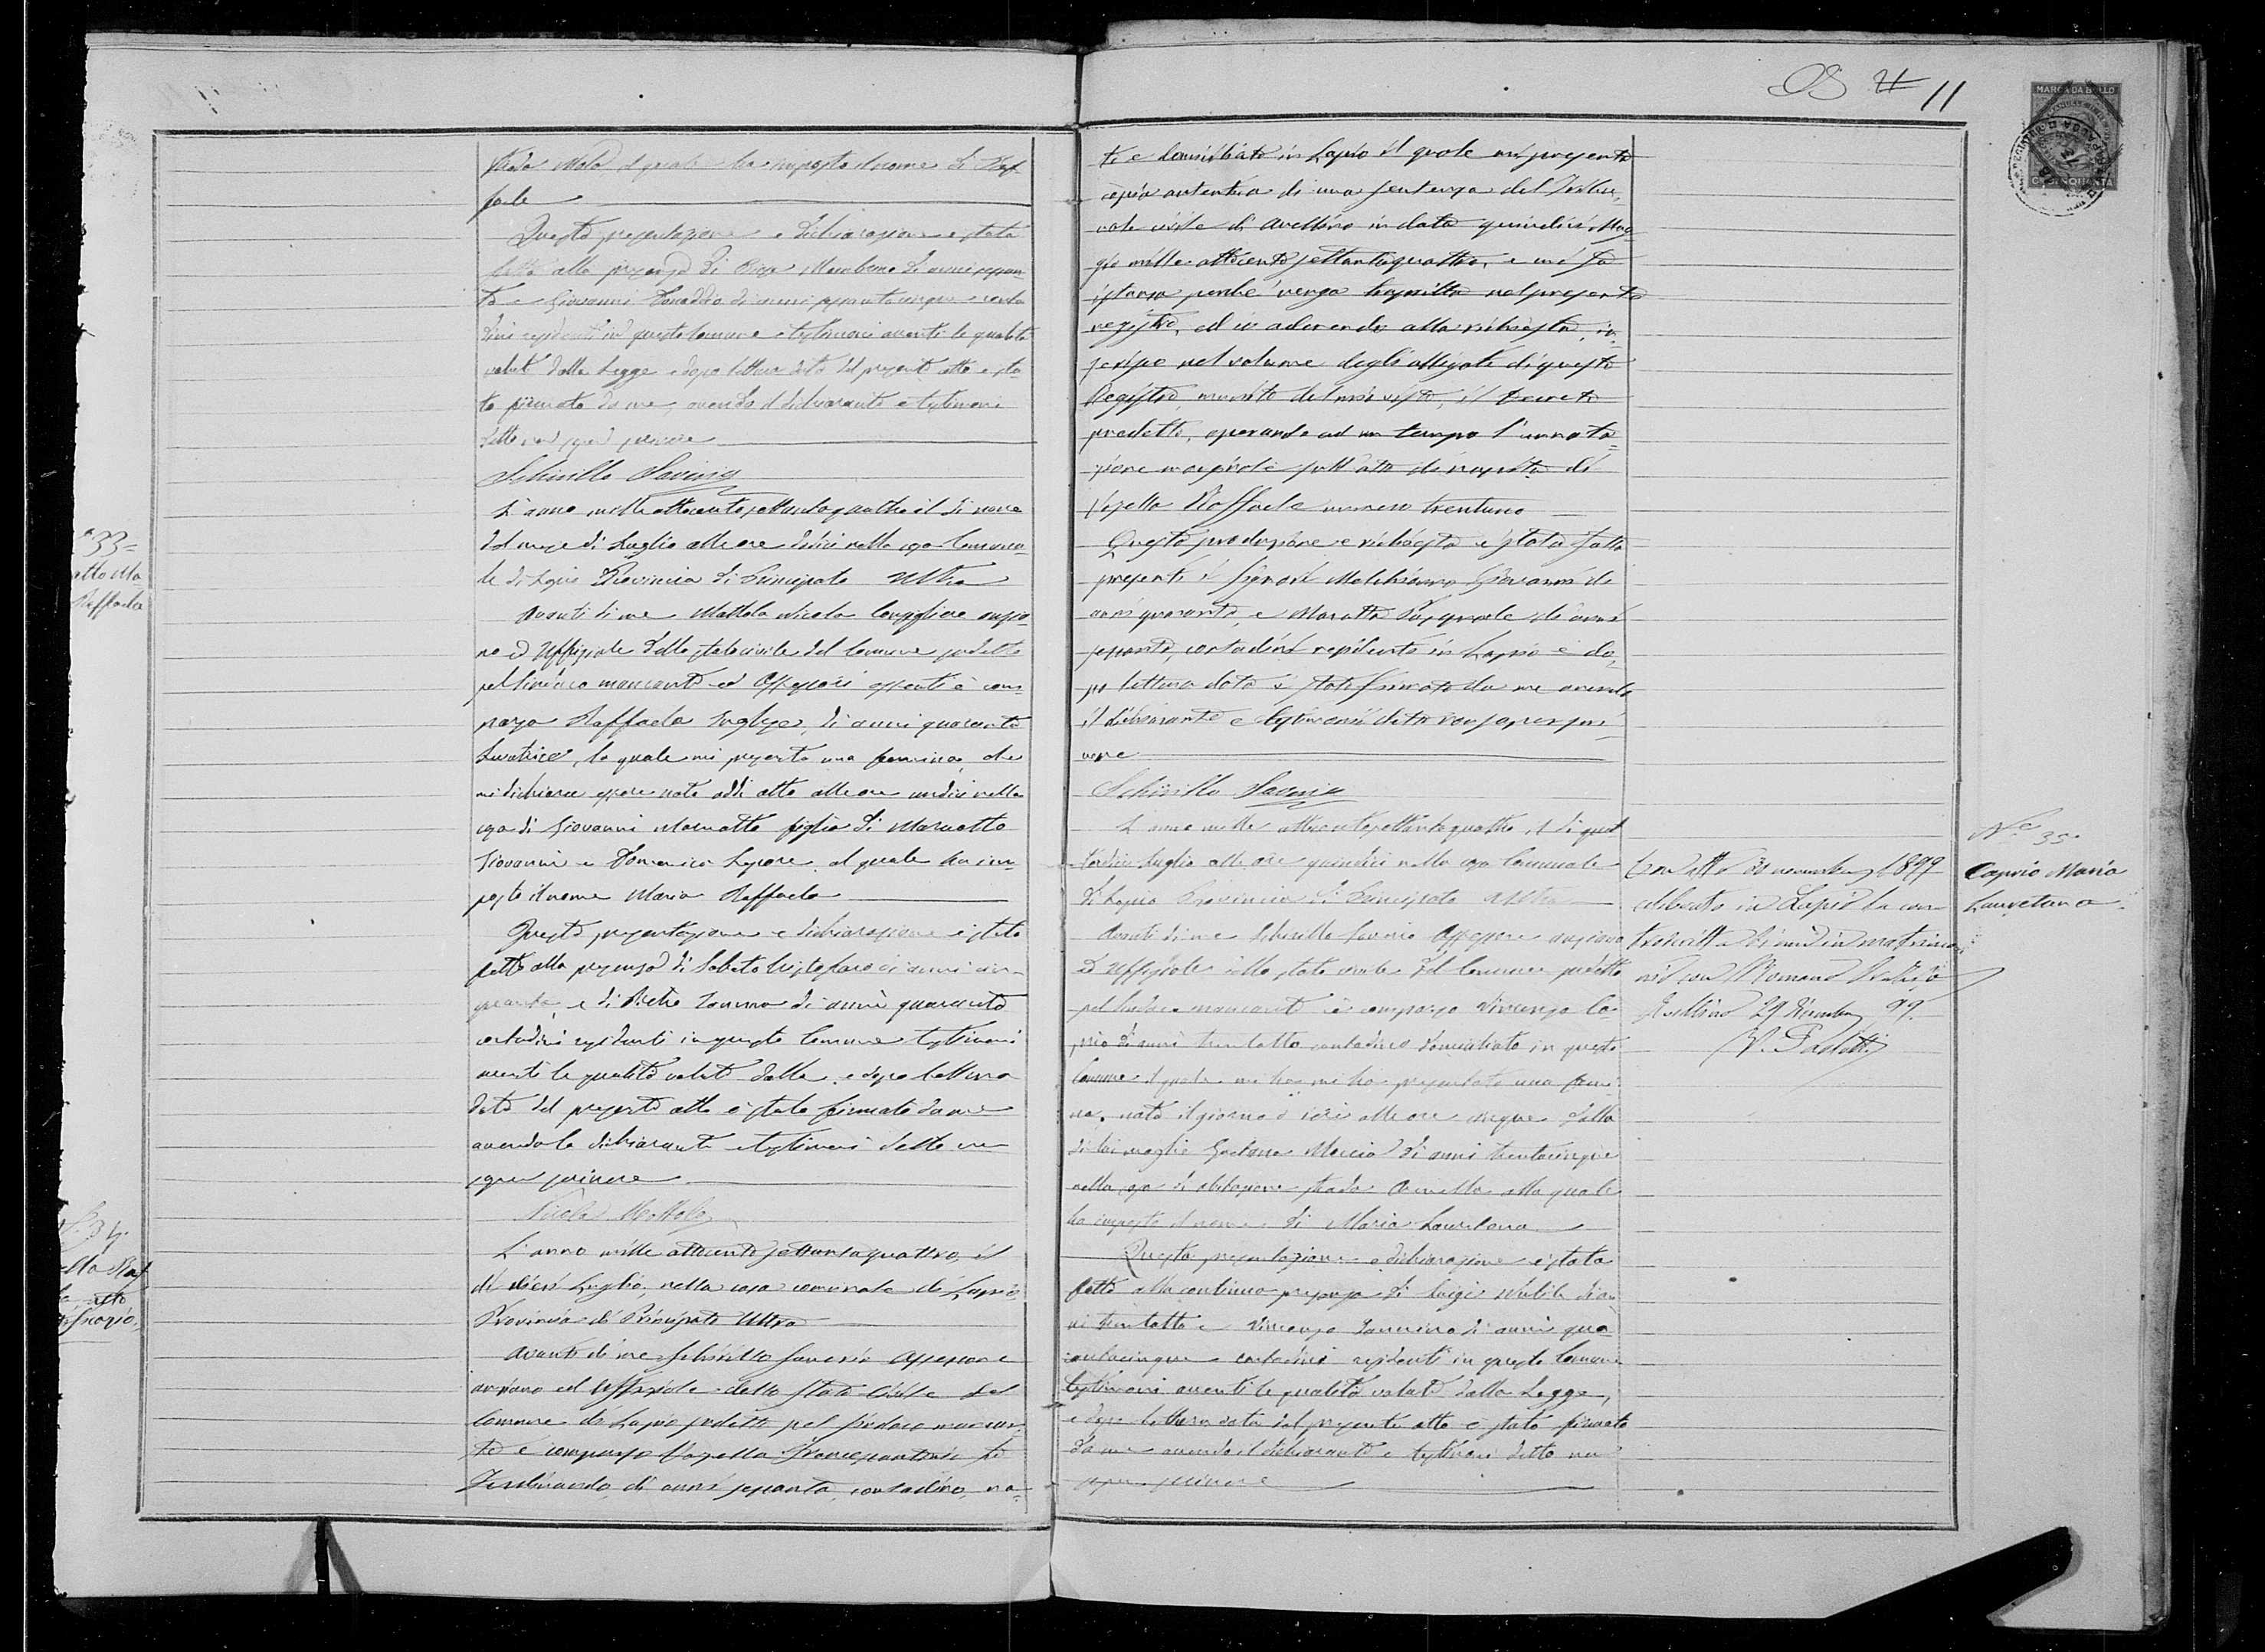 strada Mola al quale ha imposto il nome di Raf
faele
Questa presentazione e dichiarazione è stata
fatta alla presenza di
ta e Giovanni di anni sessantacinque conta
dini residenti in questo Comune testimoni aventi le qualità
volute dalla Legge e dopo lettura data del presente atto è sta
to firmato da me, avendo il dichiarante e testimoni
detto non saper scrivere
Schirillo Saverio
L'anno mille ottocento settantaquattro il dì nove
del mese di Luglio alle ore dodici nella casa Comuna
le di Lapio Provincia di Principato Ultra
Avanti di me Mottola Nicola Consigliere anzia
no ed Uffiziale dello stato civile del Comune sudetto
pel Sindaco mancante ed Assessori assenti è com
parsa Raffaela Inglese, di anni quaranta
levatrice, la quale mi presenta una femina, che
mi dichiara essere nata addì otto alle ore undici nella
casa di Giovanni Marnotto figlia di Marnotto
Giovanni e Domenica Lepore, al quale ha im
posto il nome Maria Raffaela
Questa presentazione e dichiarazione è stata
fatta alla presenza di Sabato Cristofaro di anni cin
quanta, e di Pietro Iannino di anni quaranta
contadini residenti in questo Comune testimoni
aventi le qualità volute dalla, e dopo lettura
data del presente atto è stato firmato da me
avendo la dichiarante e testimoni detto non
saper scrivere
Nicola Mottola
L'anno mille ottocento settantaquattro, il
dì dieci Luglio, nella casa comunale di Lapio
Provincia di Principato Ultra
Avanti di me Schirillo Saverio Assessore
anziano ed Uffiziale dello Stato Civile del
Comune di Lapio sudetto pel Sindaco mancan
te è comparso Francescantonio fu
Ferdinando di anni sessanta, contadino, na
33
atto Ma
Raffaela
N. 34
ella Raf
11
to e domiciliato in Lapio il quale mi presenta
copia autentica di una sentenza del Tribu
nale civile di Avellino in data quindici Mag
gio mille ottocento settantaquattro, e mi fa
istanza perchè venga trascritta nel presente
registro, ed io aderendo alla richiesta, in
serisco nel volume degli allegati di questo
Registro, munito del mio visto, il decreto
predetto, operando ad un tempo l'annota
zione marginale sull'atto di nascita di
Raffaele numero trentuno
Questa produzione e richiesta è stata fatta
presenti i Signori Melchionno Giovanni di
anni quaranta, e Pasquale di anni
sessanta, contadini residenti in Lapio e do
po lettura data è stato firmato da me avendo
il dichiarante e testimonii detto non saper scri
vere
Schirillo Saverio
L'anno mille ottocento settantaquattro, il dì quat
tordici Luglio alle ore quindici nella casa Comunale
di Lapio Provincia di Principato Ultra
Avanti di me Schirillo Saverio Assessore anziano
ed Uffiziale dello stato civile del Comune predetto
pel Sindaco mancante è comparso Vincenzo Ca
prio di anni trentotto contadino domiciliato in questo
Comune il quale mi ha mi ha presentato una femi
na, nata il giorno d'ieri alle ore cinque dalla
di lui moglie Gaetana Moccia di anni trentacinque
nella casa di abitazione strada alla quale
ha imposto il nome di Maria Lauretana
Questa presentazione e dichiarazione è stata
fatta alla continua presenza di Luigi di an
ni trentotto e Vincenzo Iannino di anni qua
rantacinque contadini residenti in questo Comune
testimoni aventi le qualità volute dalla Legge,
e dopo lettura data del presente atto è stato firmato
da me avendo il dichiarante e testimoni detto non
saper scrivere
N.º 35.
Caprio Maria
Lauretana
Con atto 30 novembre 1899
celebrato in Lapio la con
troscritta si unì in matrimo
nio con Romano
Avellino 29 Dicembre 99.
MARCA DA BOLLO
CINQUANTA